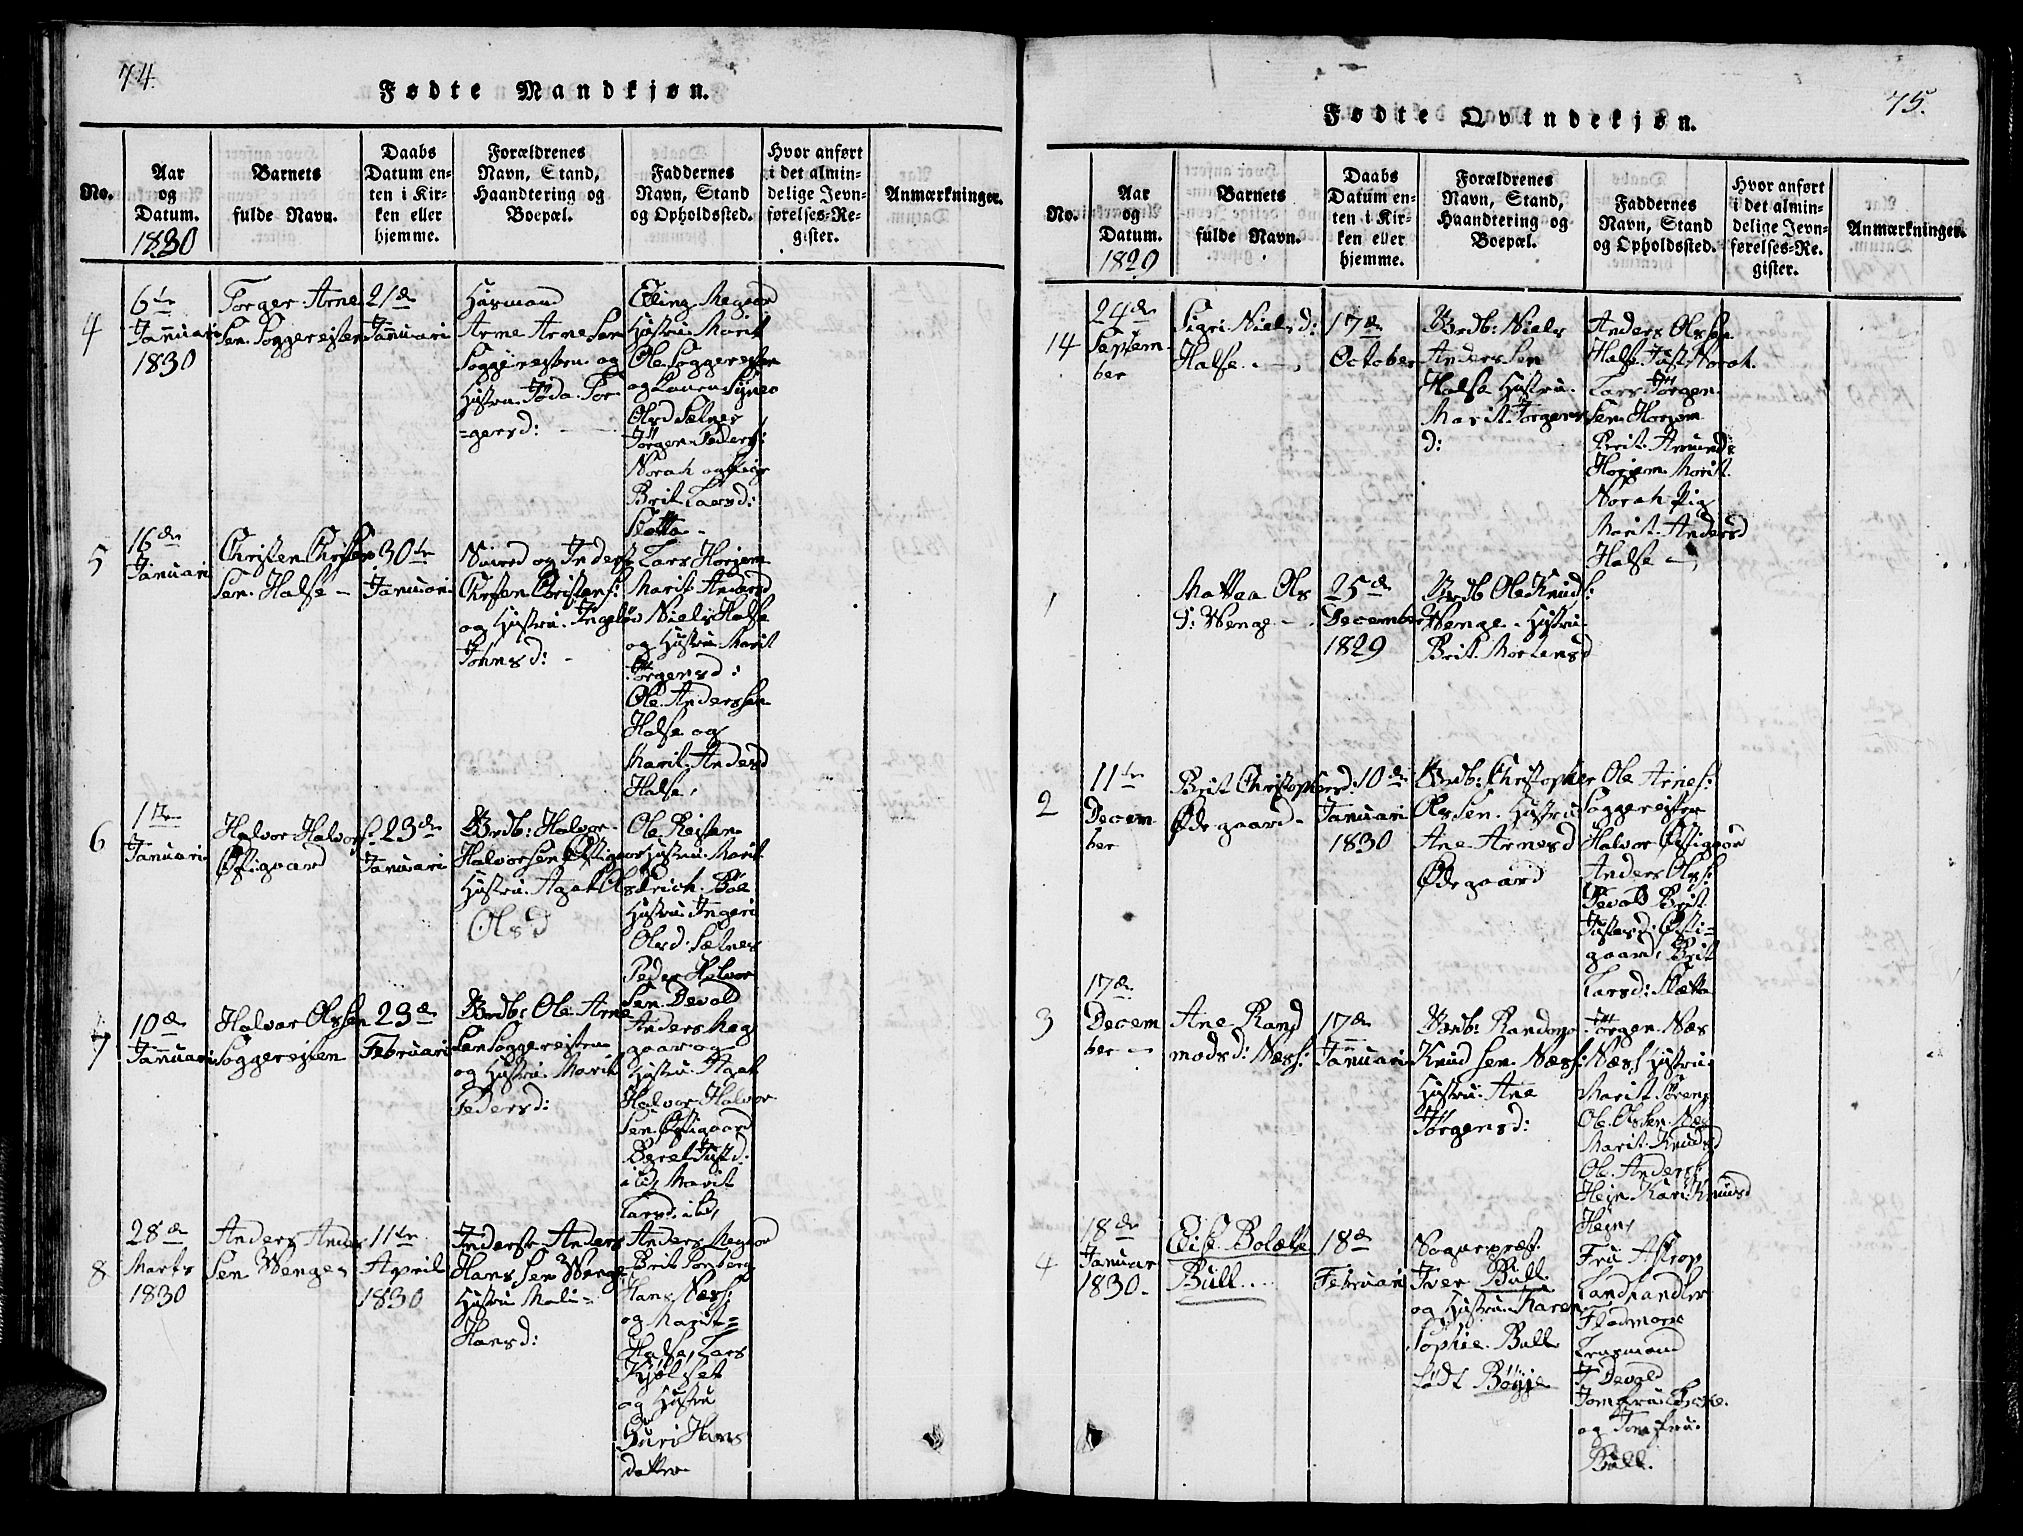 74.
Fødte Mandkjøn.
No.
Aar
og
Datum.
1830
Barnets
fulde Navn.
Daabs
Datum en-
ten i Kir-
ken eller
hjemme.
Forældrenes
Navn, Stand,
Haandtering og
Boepæl.
Faddernes
Navn, Stand
og Opholdssted.
Hvor anført
i det almin-
delige Jevn-
førelses-Re-
gister.
Anmærkninger.
4
6te
Januari
1830
Torger Arne
Sen. Soggereisten
21de
Januari
Huusmand
Arne Arne Sen
Soggereisten og
Hustru
gersd:
Erling Megaard
Hustru Marit
Ole Soggereisten
og
Olsd Sælnes
Jörgen Peders:
Norah og Pige
Brit Larsd:
Slætta
5
16de
Januari
Christen Christen
Sen. Halse
30te
Januari
og Inderst
Chrsten Christens:
og Hustru. Ingebor
Johnsd:
Lars Horjem
Marit Andersd
Niels Halse
og Hustru Marit
Jörgensd:
Ole Anderssen
Halse og
Marit Andersd
Halse,
6
1te
Januari
Halvor Halvors:
Østigaard
23de
Januari
Brdb: Halvor
Halvorsen Østigaar
Hustru Agat Ols
Olsd
Ole Reisten
Hustru Marit
Erich Böe
Hustru Ingeri
Olsd: Sælnes
Peder Halvor
Sen. Devold
7
10de
Januari
Halvor Olssen
Soggereisten
23de
Februari
Brdb: Ole Arne
Sen Soggereisten
og Hustru Marit
Pedersd:
Anders Meg
gaar og
Hustru Agat
Halvor Halvor
Sen. Østigaard
Beret Justd:
ibd, Marit
Larsd: ibd,
8
28de
Marts
1830
Anders Anders
Sen Wenge
11te
April
1830
Inderst Anders
Hans Sen Wenge
Hustru Mali
Hansd:
Anders Megaard
Brit
Hans Næss:
og Marit
Halse, Lars
Kjölset
og Hustru
Guri Hans
datter
75.
Fødte Qvindekjøn.
No.
Aar
og
Datum.
1829
Barnets
fulde Navn.
Daabs
Datum en-
ten i Kir-
ken eller
hjemme.
Forældrenes
Navn, Stand,
Haandtering og
Boepæl.
Faddernes
Navn, Stand
og Opholdssted.
Hvor anført
i det almin-
delige Jevn-
førelses-Re-
gister.
Anmærkninger.
14
24de
Septem
ber
Sigri Nielsd:
Halse
17de
October
Brdb: Niels
Anderssen
Halse Hustru
Marit Jorgens
d:
Anders Olssen
Halse Just Norah
Lars Jörgen
Sen Horjem
Brit Amund:
Horjem Marit
Norah Pig
Marit Andersd
Halse
1
Mattaa Ols
d: Wenge
25de
December
1829
Brdb Ole Knuds:
Wenge Hustru
Brit Mortensd
2
11te
Decem
ber
Brit Christophersd
Øde gaard
10de
Januari
1830
Brdb: Christopher
Olssen. Hustru
Ane Arnesd
Øde gaard
Ole Arnes:
Soggereisten
Halvor Østigaard
Anders Ols:
Devold Brit
Justesd: Østi-
gaard, Brit
Larsd: Slætta
3
17de
Decem
ber
Ane Rand
modsd: Næss:
17de
Januari
Brdb: Randmo
Knud sen Næss:
Hustru Ane
Jörgensd:
Jörgen Næs
Næss Hustru
Marit Sörens
Ole Olssen Næs
Marit Knudsd
Ole Anders
Hejn Kari Knudsd
Hejn,
4
18de
Januar
1830.
Elise Bolæte
Bull
18de
Februari
Sognepræst
Iver Bull
og Hustru Karen
Sophie Bull
født Böyje
Fru Astrop
Landhandler
Fladmark
Lensmand
J Devold
Jomfru
og Jomfru
Bull.